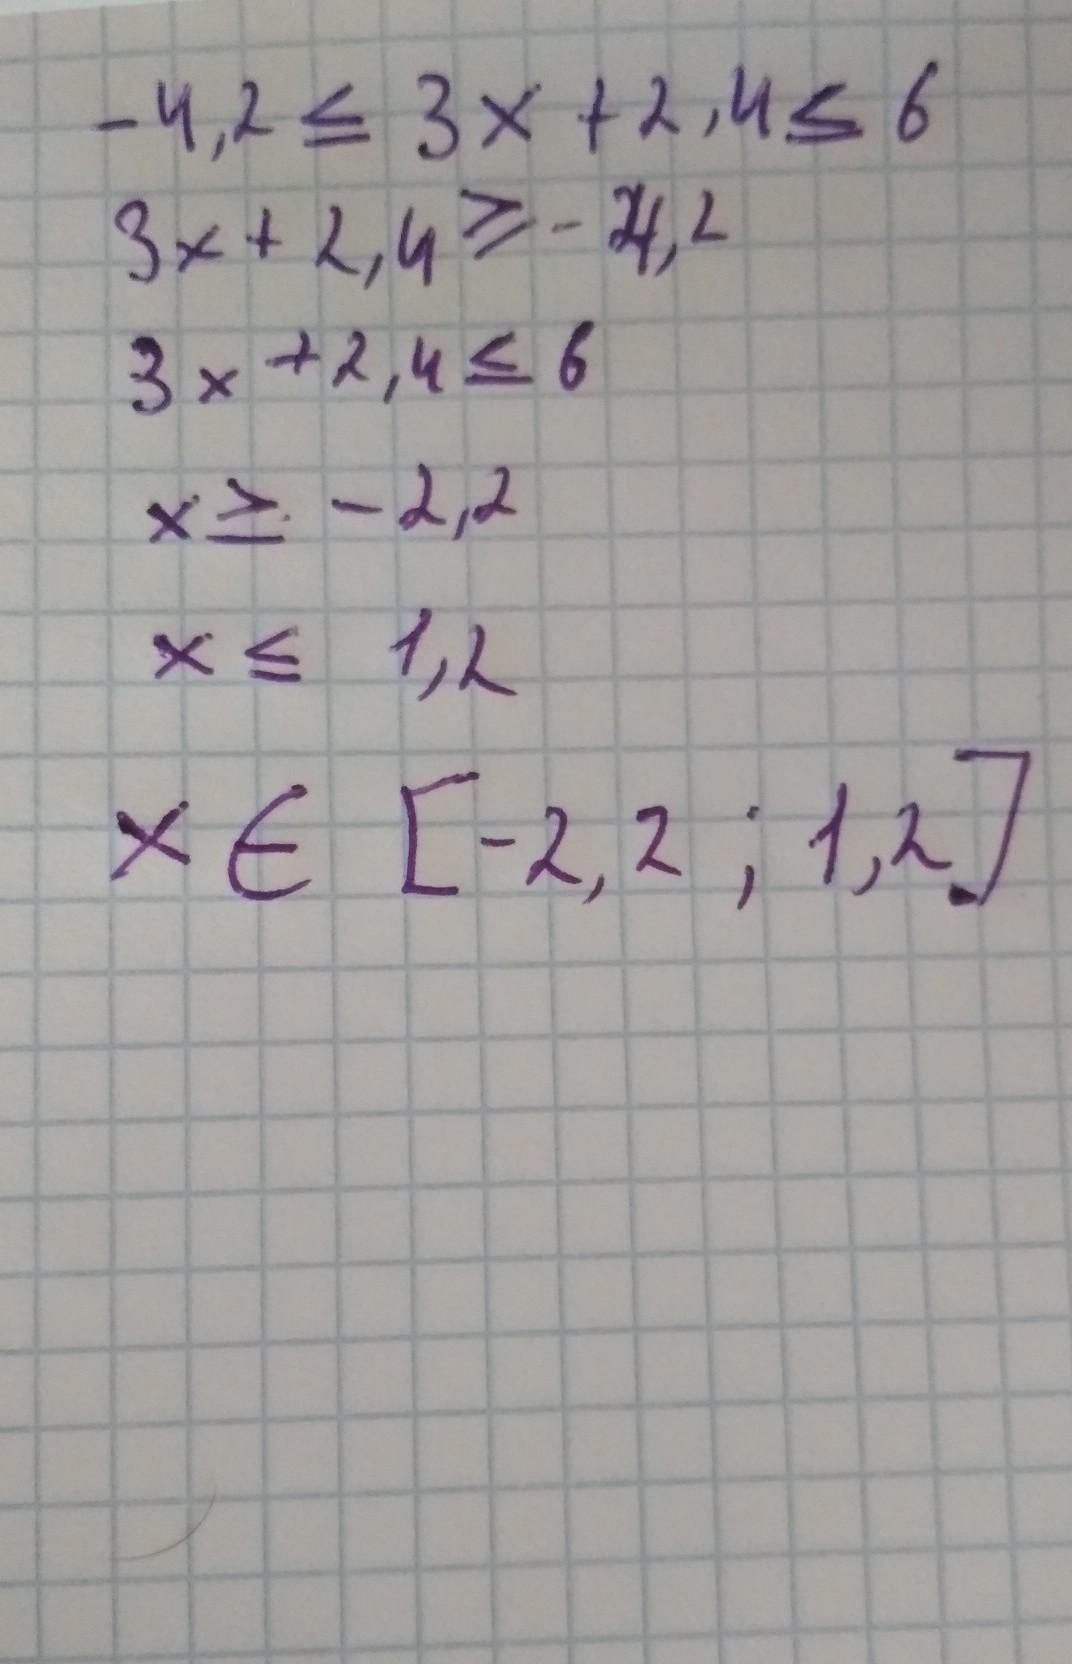 -4,2 ≤ 3x +2,4 ≤ 6
3x + 2,4 ≥ - 4,2
3x +2,4 ≤ 6
x ≥ -2,2
x ≤ 1,2
x ∈ [-2,2 ; 1,2]